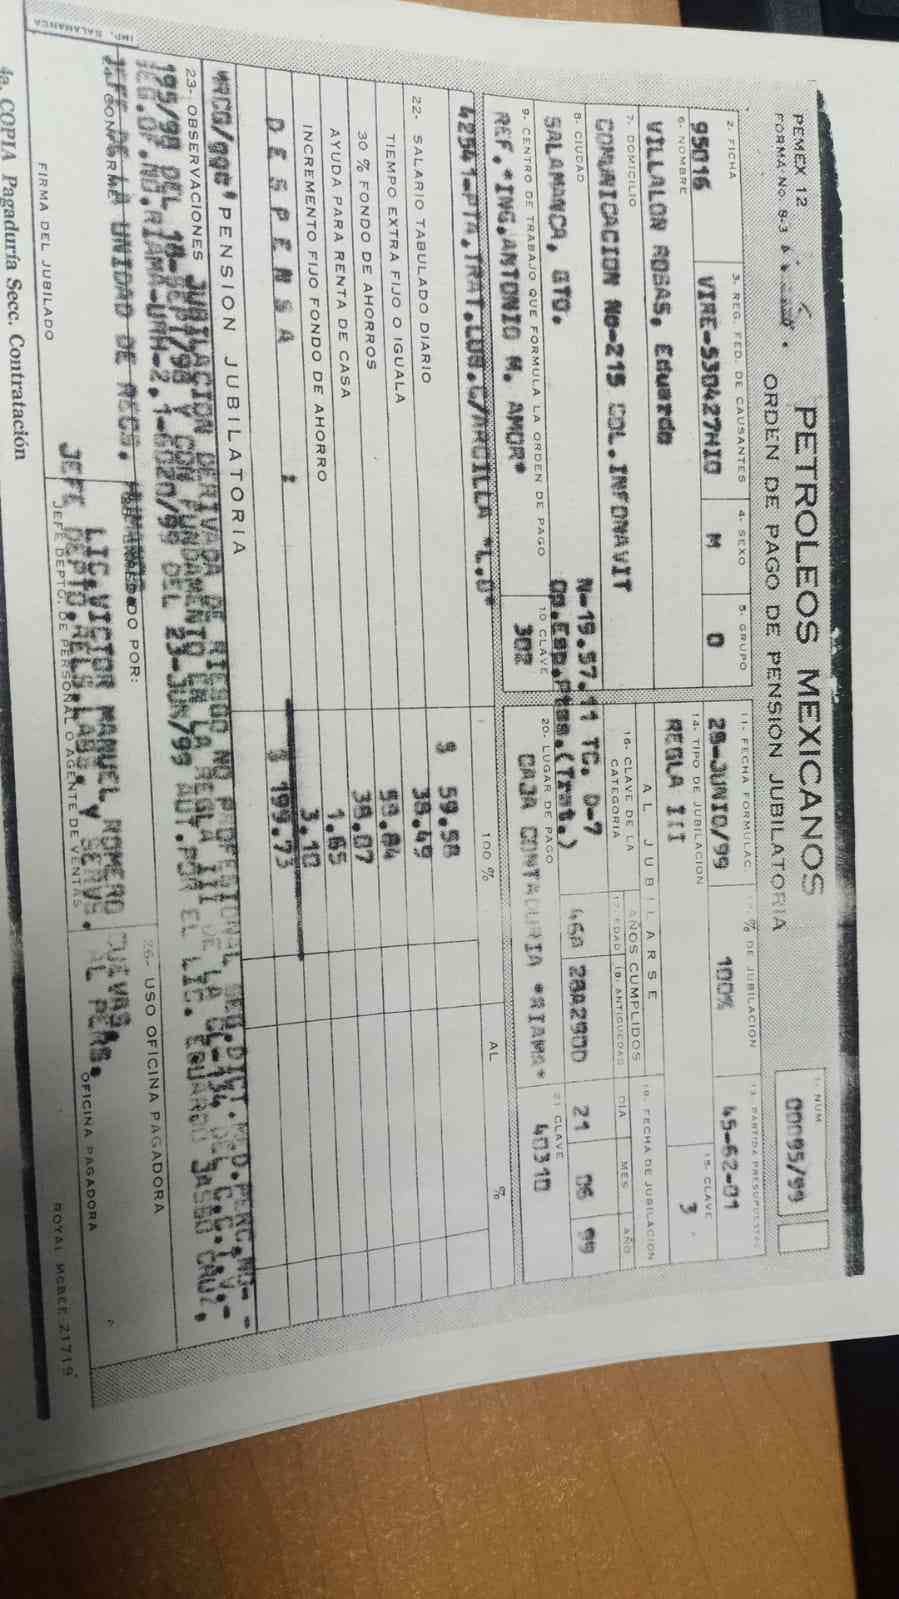 PEMEX 12
FORMA No. 8-3
PETROLEOS MEXICANOS
ORDEN DE PAGO DE PENSION JUBILATORIA
1- NUM
00095/99
2- FICHA
95016
3- REG. FED. DE CAUSANTES
VIRE-530427HI0
4- SEXO
M
5- GRUPO
0
6- NOMBRE
VILLALON ROBAS, Eduardo
7- DOMICILIO
COMUNICACION No-215 COL.INFONAVIT
8- CIUDAD
SALAMANCA, GTO.
9- CENTRO DE TRABAJO QUE FORMULA LA ORDEN DE PAGO
REF.*ING.ANTONIO M. AMOR*
10 CLAVE
302
42541-PTA.TRAT.LUB.C/ARCILLA *L.O*
11- FECHA FORMULAC.
29-JUNIO/99
% DE JUBILACION
100%
13- PARTIDA PRESUPUESTAL
45-62-01
14- TIPO DE JUBILACION
REGLA III
15- CLAVE
3
AL JUBILARSE
16- CLAVE DE LA CATEGORIA
N-19.57.11 TC. D-7
Op.Esp.Ptas.(Trat.)
AÑOS CUMPLIDOS
17- EDAD
46A
18- ANTIGUEDAD
28A290D
19- FECHA DE JUBILACION
DIA MES AÑO
21 06 99
20- LUGAR DE PAGO
CAJA CONTADURIA *RIAMA*
21 CLAVE
40310
100 % AL %
22- SALARIO TABULADO DIARIO $ 59.58
TIEMPO EXTRA FIJO O IGUALA 38.49
30 % FONDO DE AHORROS 58.84
AYUDA PARA RENTA DE CASA 38.07
INCREMENTO FIJO FONDO DE AHORRO 1.65
D E S P E N S A : 3.10
PENSION JUBILATORIA $ 199.73
MRCG/ggc'
23- OBSERVACIONES JUBILACION DERIVADA DE RIESGO NO PROFESIONAL SEG.DICT.MED.PERC.NO.-
195/99 DEL 18-SEP/98 Y CON FUNDAMENTO EN LA REGLA III DE LA CL-134 DEL C.C.T.V.-
SEG.OF.NO.RIAMA-URH-2.1-6020/99 DEL 23-JUN/99 AUT.POR EL LIC. EDUARDO JASSO CRUZ,
JEFE DE LA UNIDAD DE RECS. HUMANOS.
CONFORME
DO POR:
26- USO OFICINA PAGADORA
LIC.VICTOR MANUEL ROMERO CUEVAS
JEFE DEPTO.RELS.LABS. Y SERVS. AL PERS.
FIRMA DEL JUBILADO
JEFE DEPTO. DE PERSONAL O AGENTE DE VENTAS
OFICINA PAGADORA
IMP. SALAMANCA
ROYAL MCBEE 21719
4a. COPIA Pagaduría Secc. Contratación